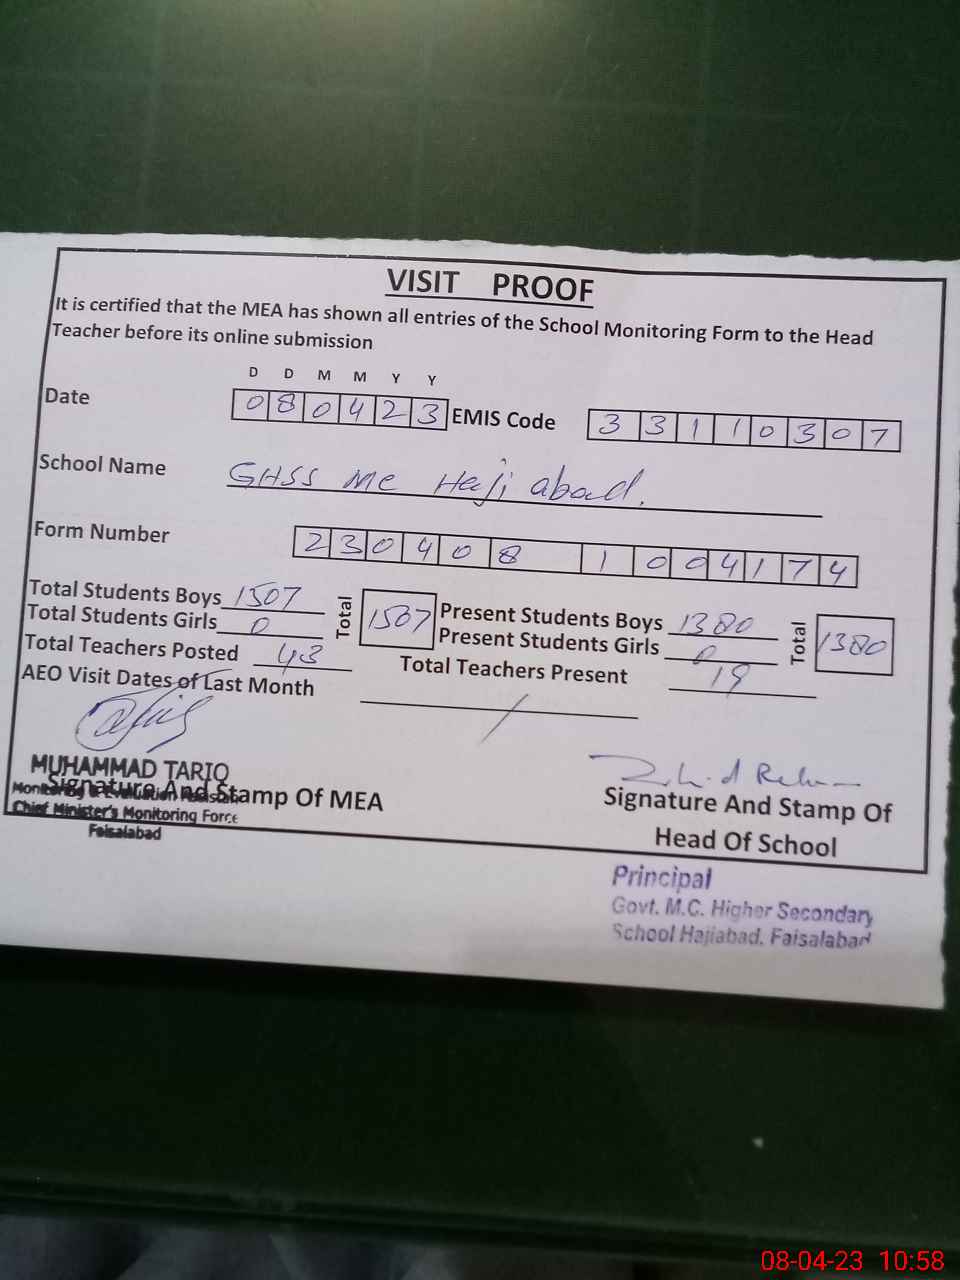 VISIT PROOF
It is certified that the MEA has shown all entries of the School Monitoring Form to the Head
Teacher before its online submission
D D M M Y Y
Date 080423 EMIS Code 33110307
School Name GHSS MC Haji abad.
Form Number 230408 1004174
Total Students Boys 1507 Total 1507 Present Students Boys 1380 Total 1380
Total Students Girls 0 Present Students Girls 0
Total Teachers Posted 43 Total Teachers Present 19
AEO Visit Dates of Last Month /
MUHAMMAD TARIQ
Signature And Stamp Of MEA
Monitoring & Evaluation
Chief Minister's Monitoring Force
Faisalabad
Signature And Stamp Of
Head Of School
Principal
Govt. M.C. Higher Secondary
School Hajiabad, Faisalabad
08-04-23 10:58